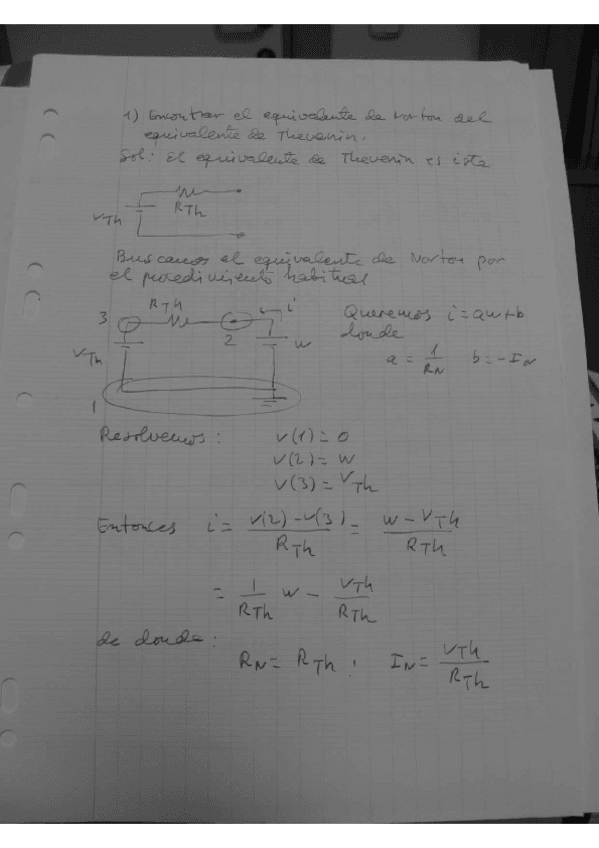 1) Encontrar el equivalente de Norton del
equivalente de Thevenin.
Sol: El equivalente de Thevenin es este
VTh
RTh
Buscamos el equivalente de Norton por
el procedimiento habitual
3
RTh
2
i
VTh
w
1
Queremos i = aw+b
donde
a = 1/RN b = -IN
Resolvemos: V(1) = 0
V(2) = w
V(3) = VTh
Entonces i = (V(2) - V(3))/RTh = (w - VTh)/RTh
= 1/RTh w - VTh/RTh
de donde:
RN = RTh , IN = VTh/RTh